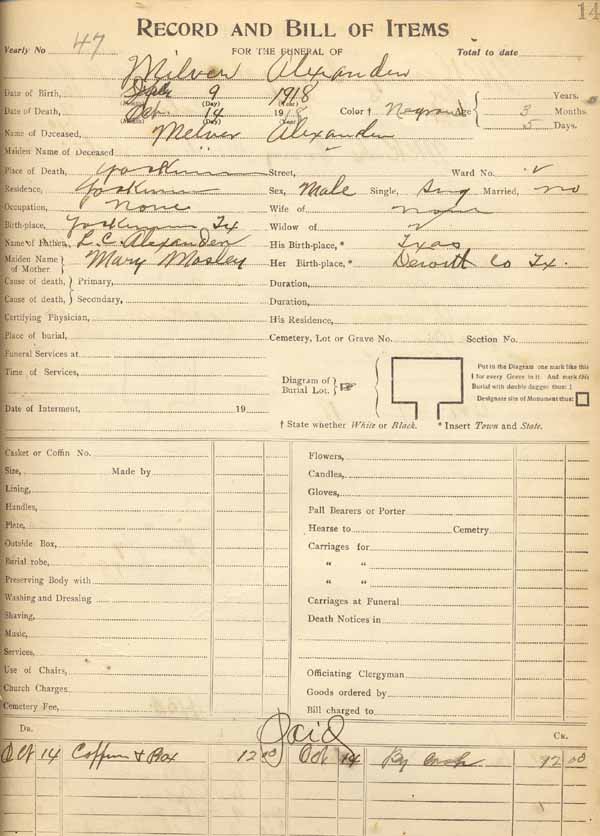 14
RECORD AND BILL OF ITEMS
Yearly No 47 FOR THE FUNERAL OF Total to date
Melver Alexander
Date of Birth, July 9 1918 Years.
(Month) (Day) (Year)
Date of Death, Oct 14 1918 Color † Age 3 Months.
(Month) (Day) (Year) 5 Days.
Name of Deceased, Melver Alexander
Maiden Name of Deceased
Place of Death, Yoakum Street, Ward No. v
Residence, Yoakum Sex, Male Single, Sing Married, no
Occupation, None Wife of none
Birth-place, Yoakum Tx Widow of v
Name of Father, L.C. Alexander His Birth-place,* Txas
Maiden Name of Mother } Mary Mosley Her Birth-place,* Dewitt Co Tx.
Cause of death, } Primary, Duration,
Cause of death, } Secondary, Duration,
Certifying Physician, His Residence,
Place of burial, Cemetery, Lot or Grave No. Section No.
Funeral Services at
Time of Services,
Diagram of Burial Lot. }
Put in the Diagram one mark like this
I for every Grave in it. And mark this
Burial with double dagger thus: ‡
Designate site of Monument thus:
Date of Interment, 19
† State whether White or Black. * Insert Town and State.
Casket or Coffin No. Flowers,
Size, Made by Candles,
Lining, Gloves,
Handles, Pall Bearers or Porter
Plate, Hearse to Cemetry
Outside Box, Carriages for
Burial robe, " "
Preserving Body with " "
Washing and Dressing Carriages at Funeral
Shaving, Death Notices in
Music,
Services,
Use of Chairs, Officiating Clergyman
Church Charges Goods ordered by
Cemetery Fee, Bill charged to
DR. Paid CR.
Oct 14 Coffin & Box 12 00 Oct 14 By Cash 12 00